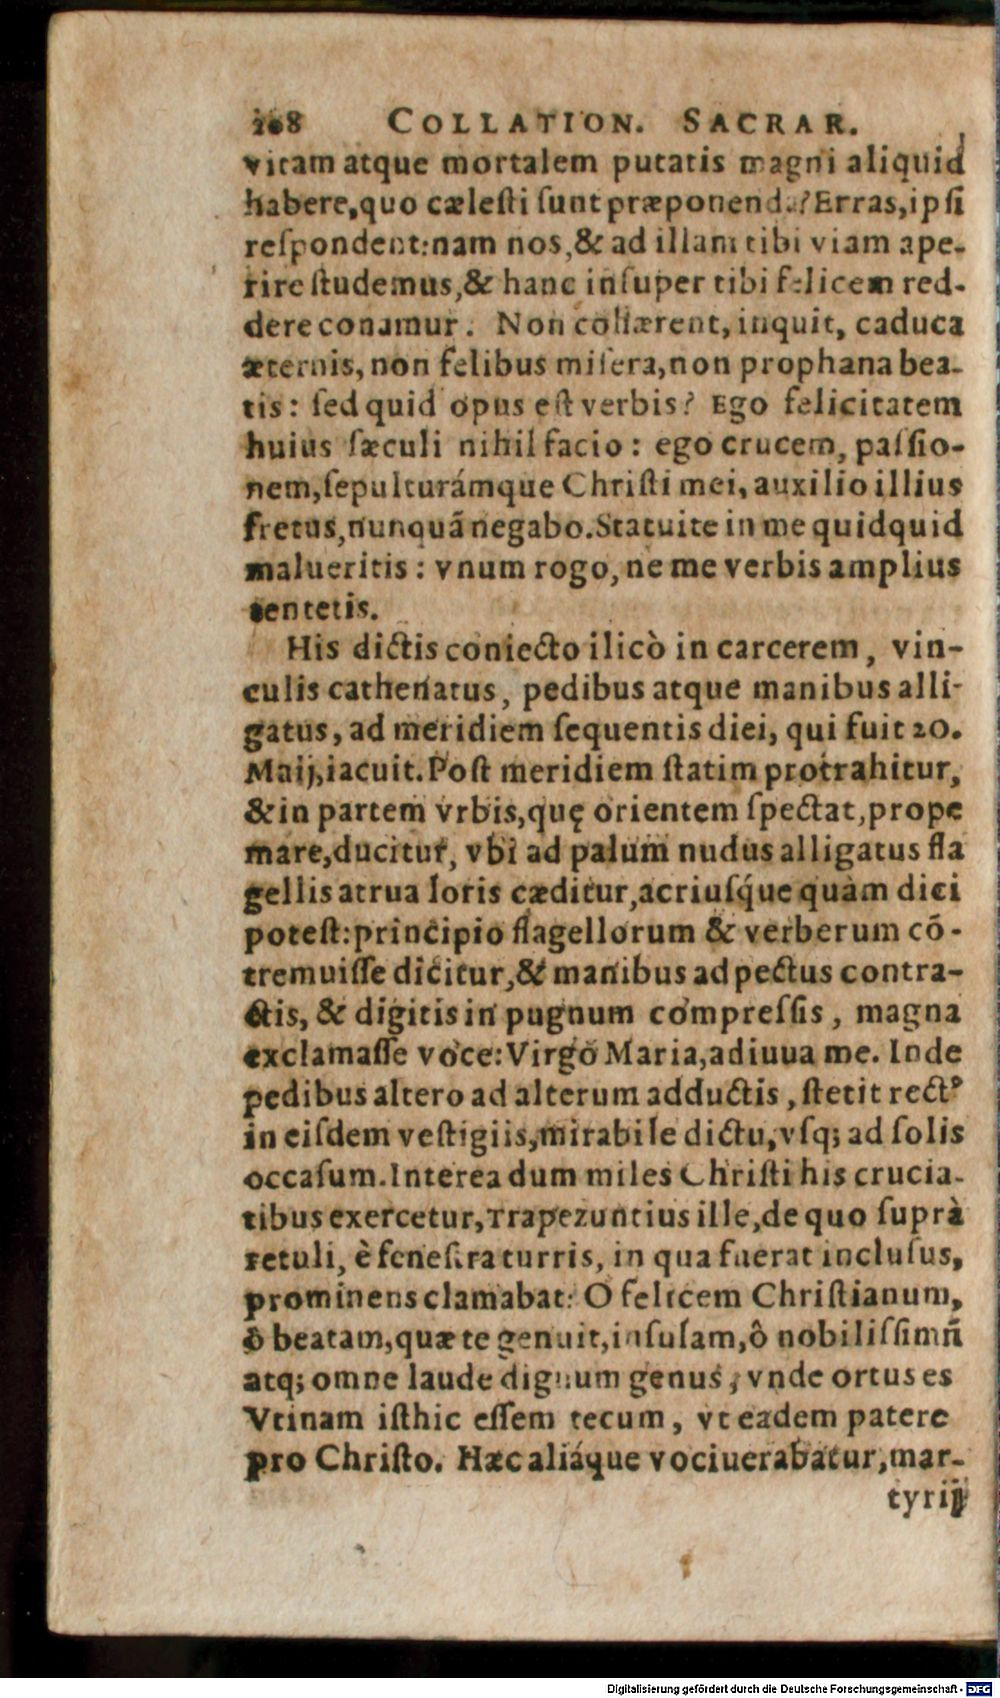 208 COLLATION. SACRAR.
vitam atque mortalem putatis magni aliquid
habere,quo cælesti sunt præponend.?Erras,ipsi
respondent:nam nos,& ad illam tibi viam ape-
rire studemus,& hanc insuper tibi felicem red-
dere conamur. Non cohærent, inquit, caduca
æternis, non felibus misera,non prophana bea-
tis: sed quid opus est verbis? Ego felicitatem
huius sæculi nihil facio: ego crucem, passio-
nem,sepulturámque Christi mei, auxilio illius
fretus,nunquã negabo.Statuite in me quidquid
malueritis: vnum rogo, ne me verbis amplius
tentetis.
His dictis coniecto ilicò in carcerem, vin-
culis cathenatus, pedibus atque manibus alli-
gatus, ad meridiem sequentis diei, qui fuit 20.
Maij,iacuit.Post meridiem statim protrahitur,
& in partem vrbis,quę orientem spectat,prope
mare,ducitur, vbi ad palum nudus alligatus fla
gellis atrua loris cæditur,acriusq́ue quàm dici
potest:principio flagellorum & verberum cõ-
tremuisse dicitur,& manibus ad pectus contra-
ctis, & digitis in pugnum compressis, magna
exclamasse voce:Virgo Maria,adiuua me. Inde
pedibus altero ad alterum adductis, stetit rectꝰ
in eisdem vestigiis,mirabile dictu,vsq; ad solis
occasum.Interea dum miles Christi his crucia-
tibus exercetur,Trapezuntius ille,de quo suprà
retuli, è fenestra turris, in qua fuerat inclusus,
prominens clamabat: O felicem Christianum,
ô beatam,quæ te genuit,insulam,ô nobilissimũ
atq; omne laude dignum genus, vnde ortus es
Vtinam isthic essem tecum, vt eadem paterer
pro Christo. Hæc aliáque vociuerabatur,mar-
tyrij
Digitalisierung gefördert durch die Deutsche Forschungsgemeinschaft - DFG